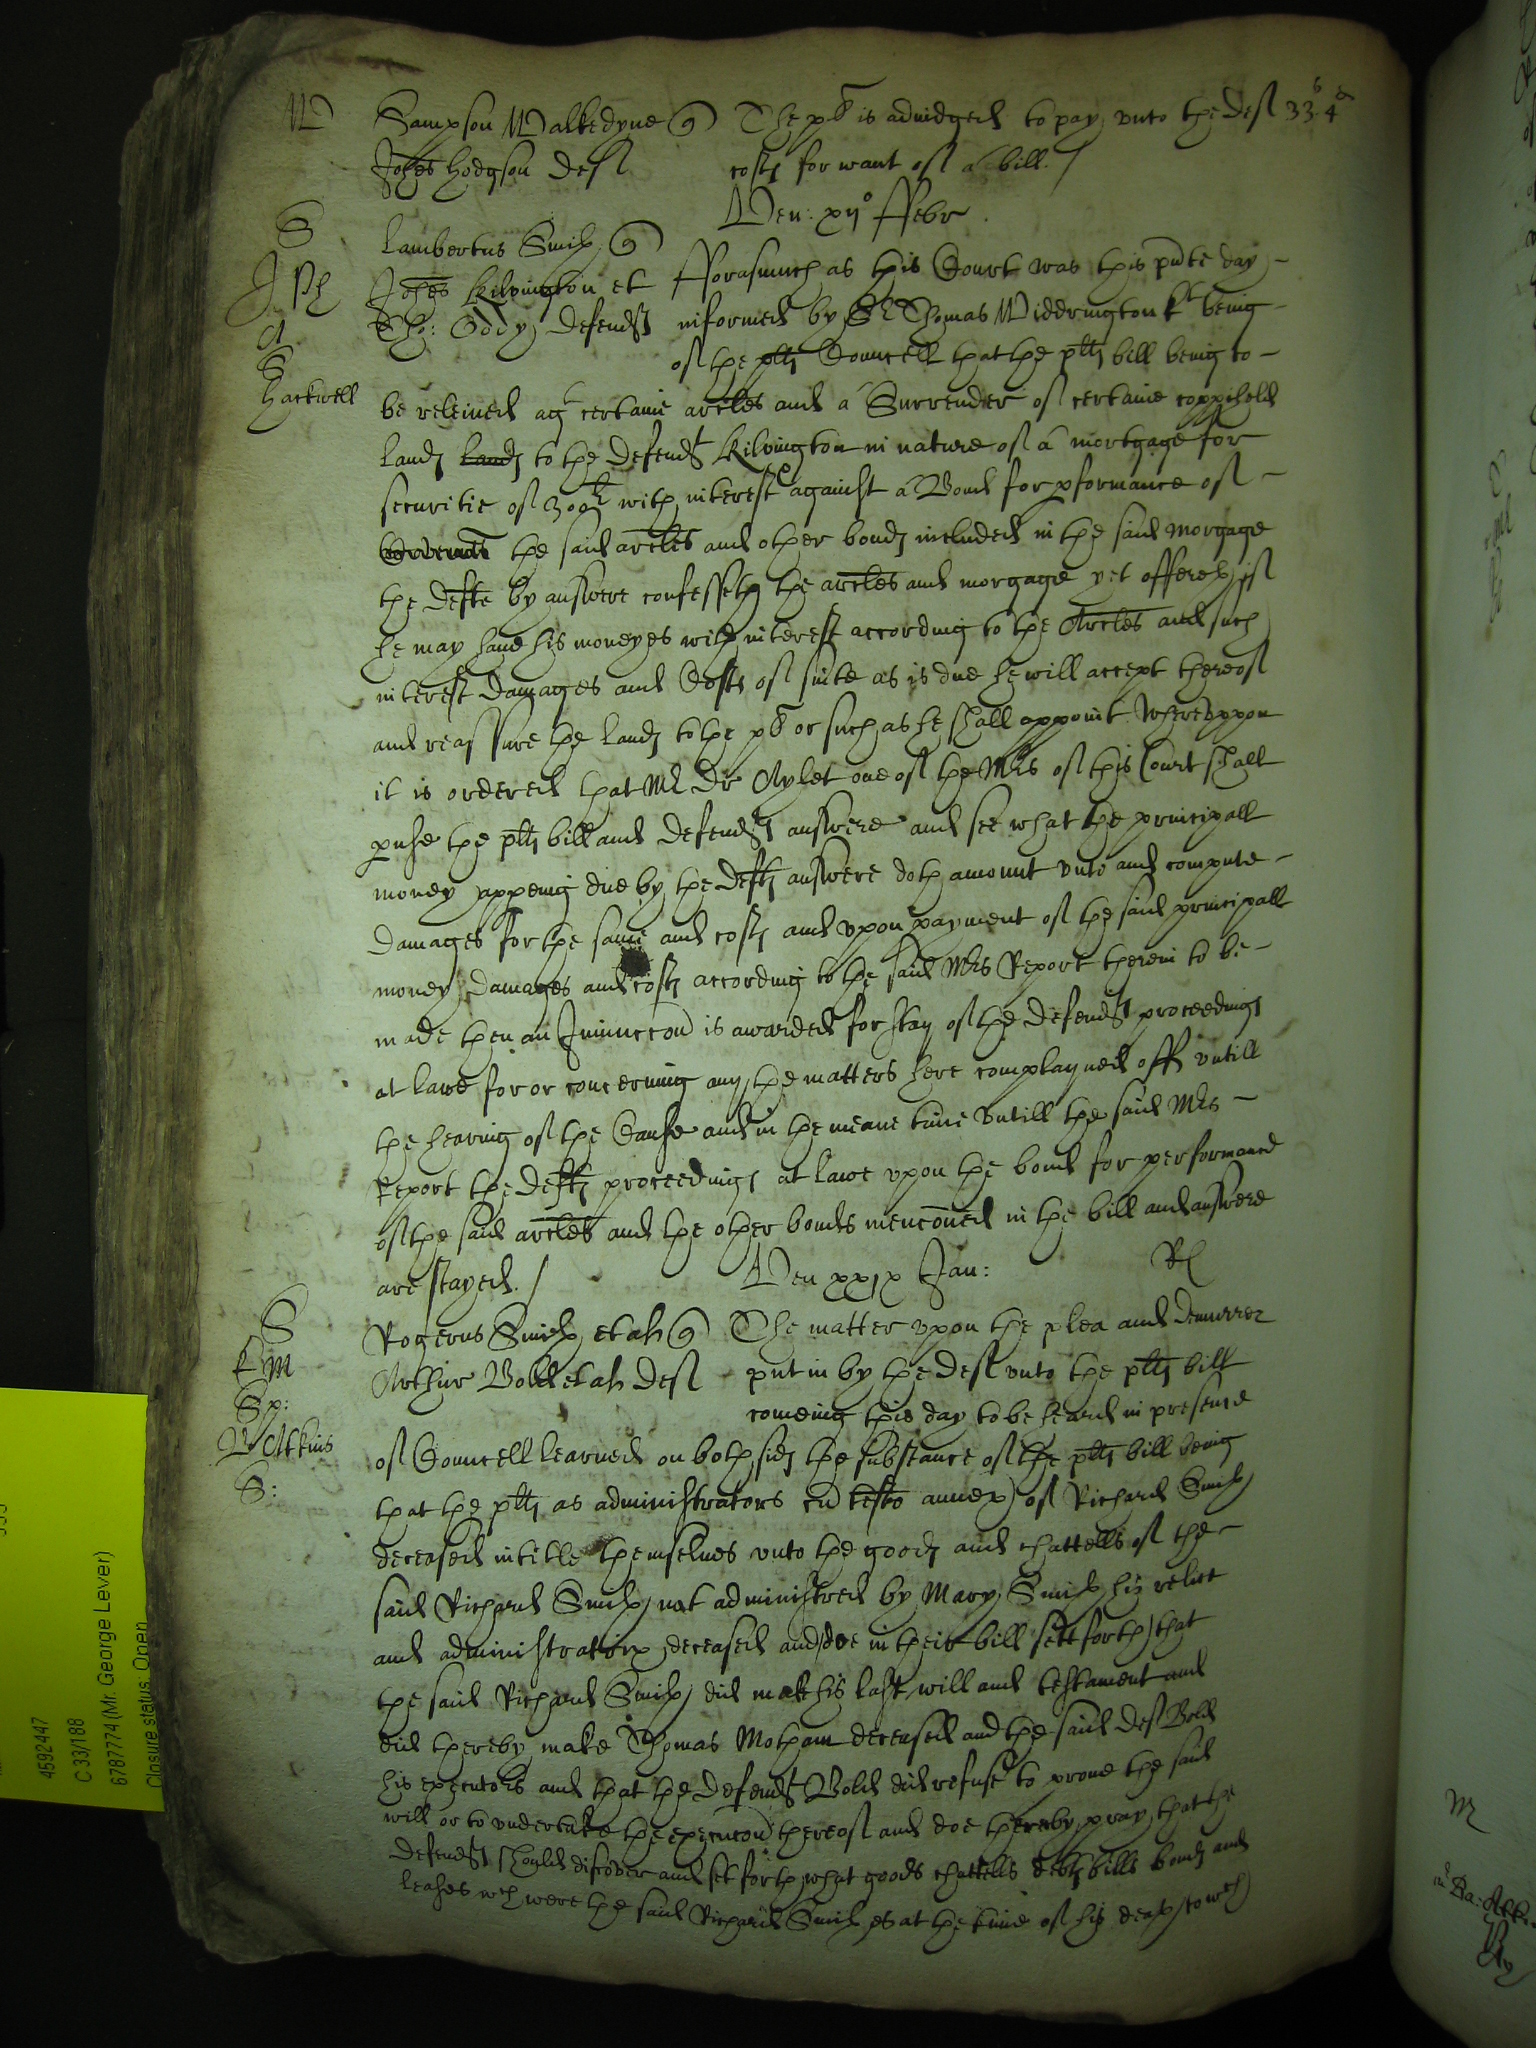 W Sampson Walkedyne q The plt is adiudged to pay vnto the deft 33s. 4d
Johes Hodgson deft costs for want of a bill./
Ven: xijo ffebr.
S Lambertus Smith q
J. Ph Johes Kilvington et fforasmuch as this Court was this pnte day
A Tho: Ody defendts informed by Sr Thomas Widdrington kt being
S of the plts Councell that the plts bill being to
Hackwell be releived agt certaine arcles and a Surrender of certaine coppihold
lands lands to the defendt Kilvington in nature of a mortgage for
securitie of 300li with interest against a Bond for pformance of
Covennts the said arcles and other bonds included in the said morgage
the defte by answere confesseth the arcles and morgage yet offereth if
he may have his moneyes with interest according to the Arcles and such
interest damages and Costs of suite as is due he will accept thereof
and reassure the lands to the plt or such as he shall appoint. Whereuppon
it is ordered that Mr Dr Aylet one of the Mrs of this Court shall
pvse the plts bill and defendts answere and see what the principall
money appeing due by the defts answere doth amount vnto and compute
damages for the same and costs and vpon payment of the said principall
money damages and costs according to the said Mrs Report therein to be
made then an Iniunccon is awarded for stay of the defendts proceedings
at lawe for or concerning any the matters here complayned off vntill
the hearing of the Cause and in the meane time vntill the said Mrs
Report the defts proceedings at lawe vpon the bond for performance
of the said arcles and the other bonds menconed in the bill and answere
are stayed./ Ven xxix Jan: Rl
S Rogerus Smith et als q The matter vpon the plea and demurrer
K M Arthur Bold et als deft put in by the deft vnto the plts bill
Sp: comeing this day to be heard in presence
W Atkins of Councell learned on both sids the substance of the plts bill being
S: that the plts as administrators cu testo annex of Richard Smith
deceased intitle themselves vnto the goods and chattells of the
said Richard Smith not administred by Mary Smith his relict
and administratrix deceased and doe in their bill sett forth that
the said Richard Smith did make his last will and testament and
did thereby make Thomas Motham deceased and the said deft Bold
his executors and that the defendt Bold did refuse to prove the said
will or to vndertake the execucon thereof and doe thereby pray that the
defendts should discover and set forth what goods chattells debts bills bonds and
leases wch were the said Richard Smithes at the time of his death to wch
4592147
C 33/188
6787774 (Mr. George Lever)
Closure status: Open